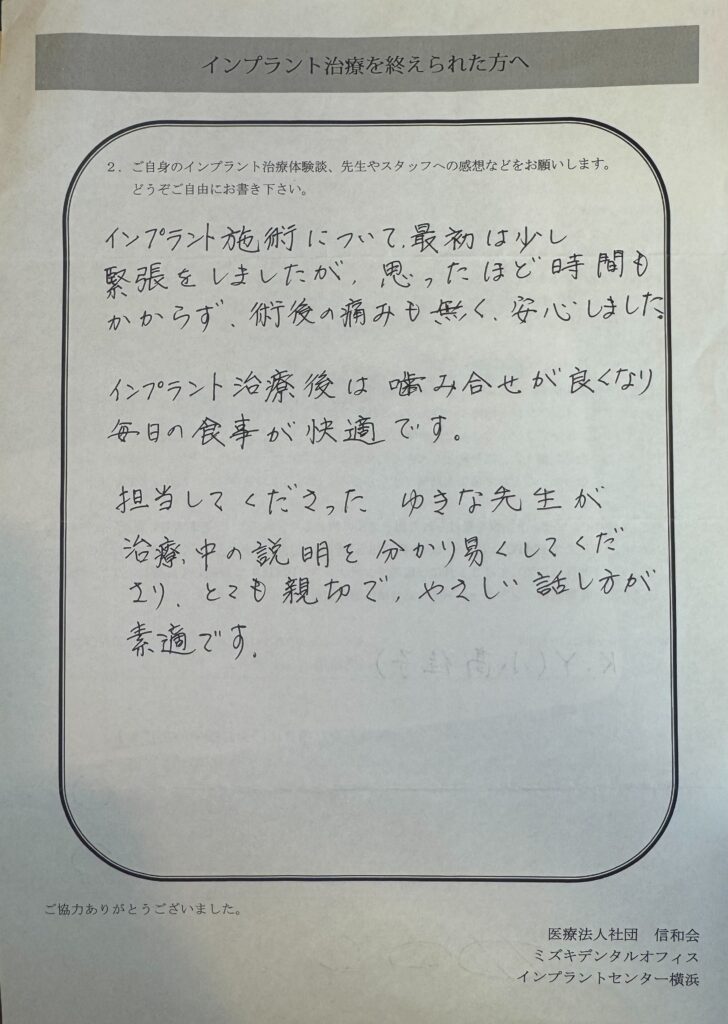 インプラント治療を終えられた方へ
２．ご自身のインプラント治療体験談、先生やスタッフへの感想などをお願いします。
どうぞご自由にお書き下さい。
インプラント施術について、最初は少し
緊張をしましたが、思ったほど時間も
かからず、術後の痛みも無く、安心しました。
インプラント治療後は噛み合せが良くなり
毎日の食事が快適です。
担当してくださった ゆきな先生が
治療中の説明を分かり易くしてくだ
さり、とても親切で、やさしい話し方が
素適です。
ご協力ありがとうございました。
医療法人社団　信和会
ミズキデンタルオフィス
インプラントセンター横浜